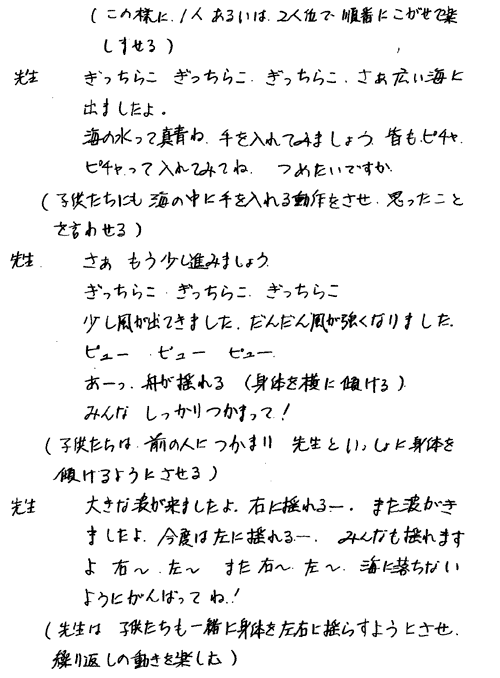 (この様に、1人あるいは、2人位で順番にこがせて楽
しませる)
先生 ぎっちらこ ぎっちらこ、ぎっちらこ、さぁ広い海に
出ましたよ。
海の水って真青ね、手を入れてみましょう、皆もピチャ
ピチャって入れてみてね、 つめたいですか、
(子供たちにも海の中に手を入れる動作をさせ、思ったこと
を言わせる)
先生、 さぁ もう少し進みましょう、
ぎっちらこ、ぎっちらこ、ぎっちらこ
少し風が出てきました、だんだん風が強くなりました、
ピュー ピュー ピュー、
あーっ、舟が揺れる (身体を横に傾ける)
みんな しっかりつかまって!
(子供たちは、前の人につかまり 先生といっしょに身体を
傾けるようにさせる)
先生 大きな波が来ましたよ、右に揺れるー、また波がき
ましたよ、今度は左に揺れるー、 みんなも揺れます
よ 右〜、左〜 また右〜、左〜、海に落ちない
ようにがんばってね!
(先生は 子供たちも一緒に身体を左右に揺らすようにさせ、
繰り返しの動きを楽しむ)